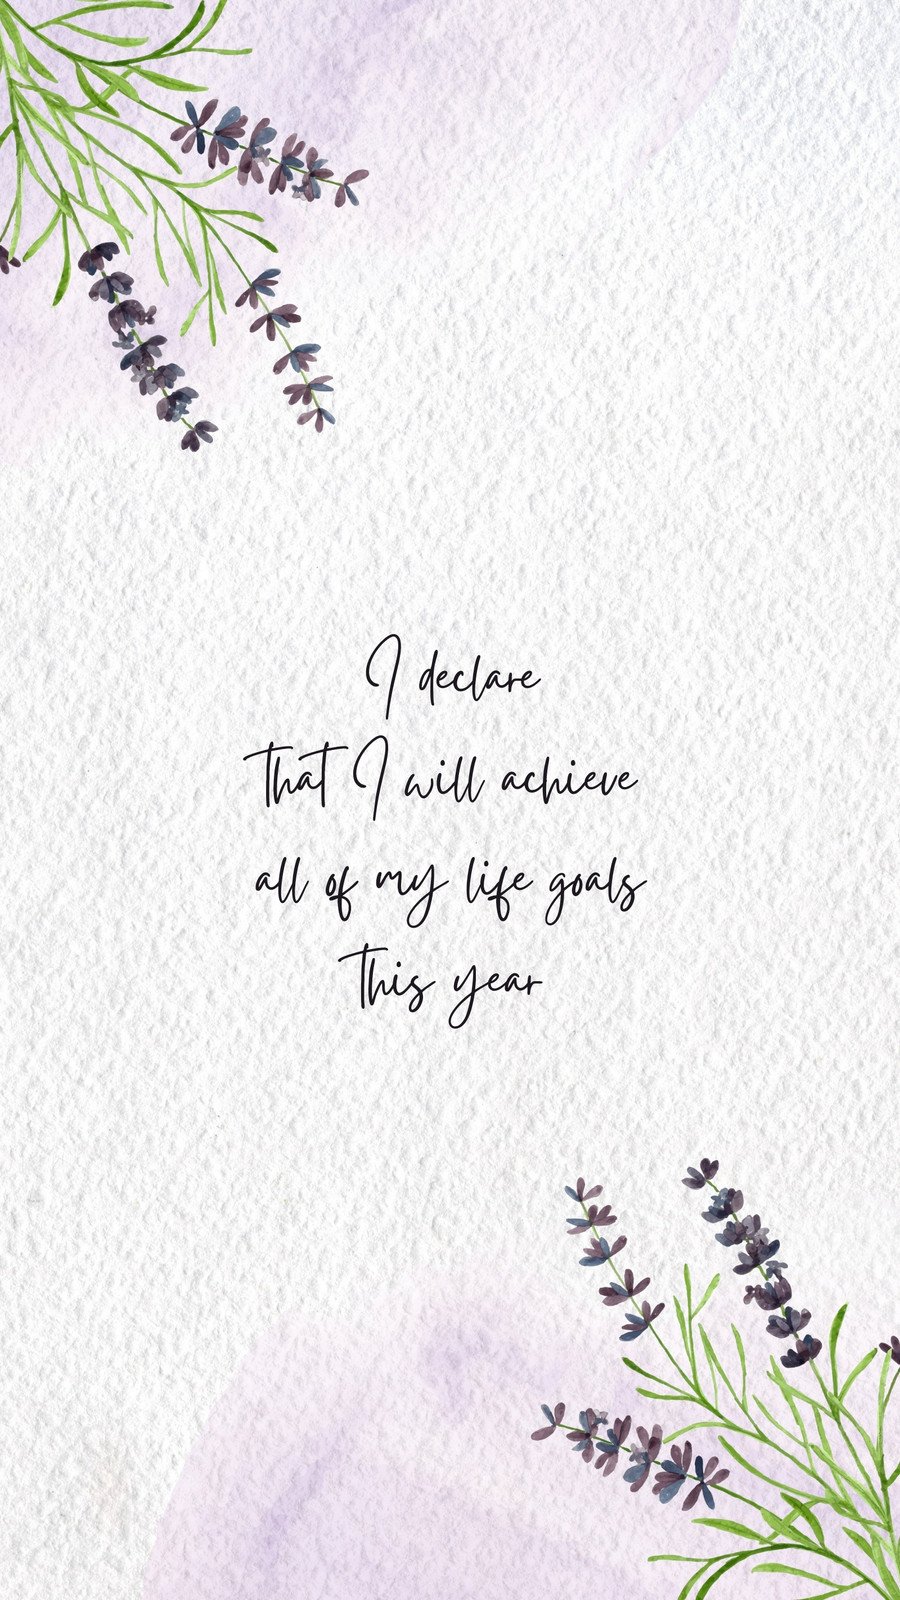 I declare
that I will achieve
all of my life goals
this year